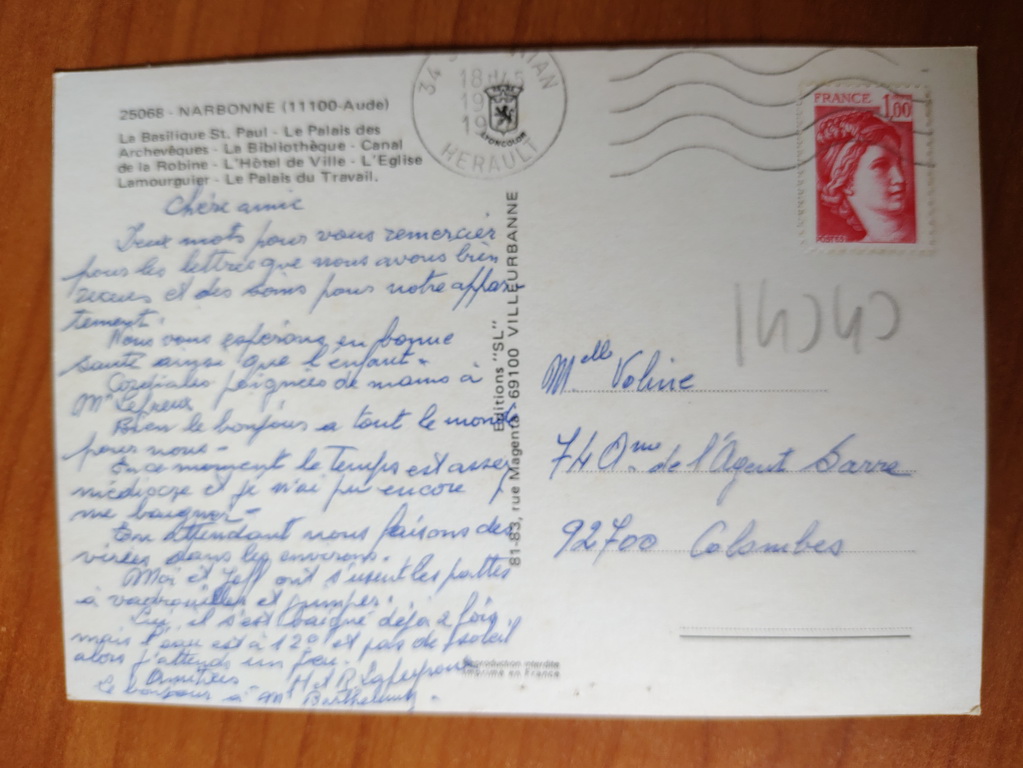 25068 - NARBONNE (11100-Aude)
La Basilique St. Paul - Le Palais des
Archevêques - La Bibliothèque - Canal
de la Robine - L'Hôtel de Ville - L'Eglise
Lamourguier - Le Palais du Travail.
Chère amie
Deux mots pour vous remercier
pour les lettres que nous avons bien
reçues et des soins pour notre appar
tement.
Nous vous espérons en bonne
santé ainsi que l'enfant.
Cordiales poignées de mains à
Mr
Bien le bonjour a tout le monde
pour nous -
En ce moment le temps est assez
médiocre et je n'ai pu encore
me baigner -
En attendant nous faisons des
virées dans les environs.
Moi et Jeff ont s'usent les pattes
à vadrouiller et grimper.
Lui, il s'est baigné déjà 2 fois
mais l'eau est à 12° et pas de soleil
alors j'attends un peu.
Amitiés H et R
le bonjour à
34 IAN
18H45
19
19
HERAULT
Editions "SL"
81-83, rue Magenta 69100 VILLEURBANNE
Reproduction interdite
Imprimé en France
FRANCE 1,00
POSTES
Melle Voline
74 de l'Agent Sarre
92700 Colombes